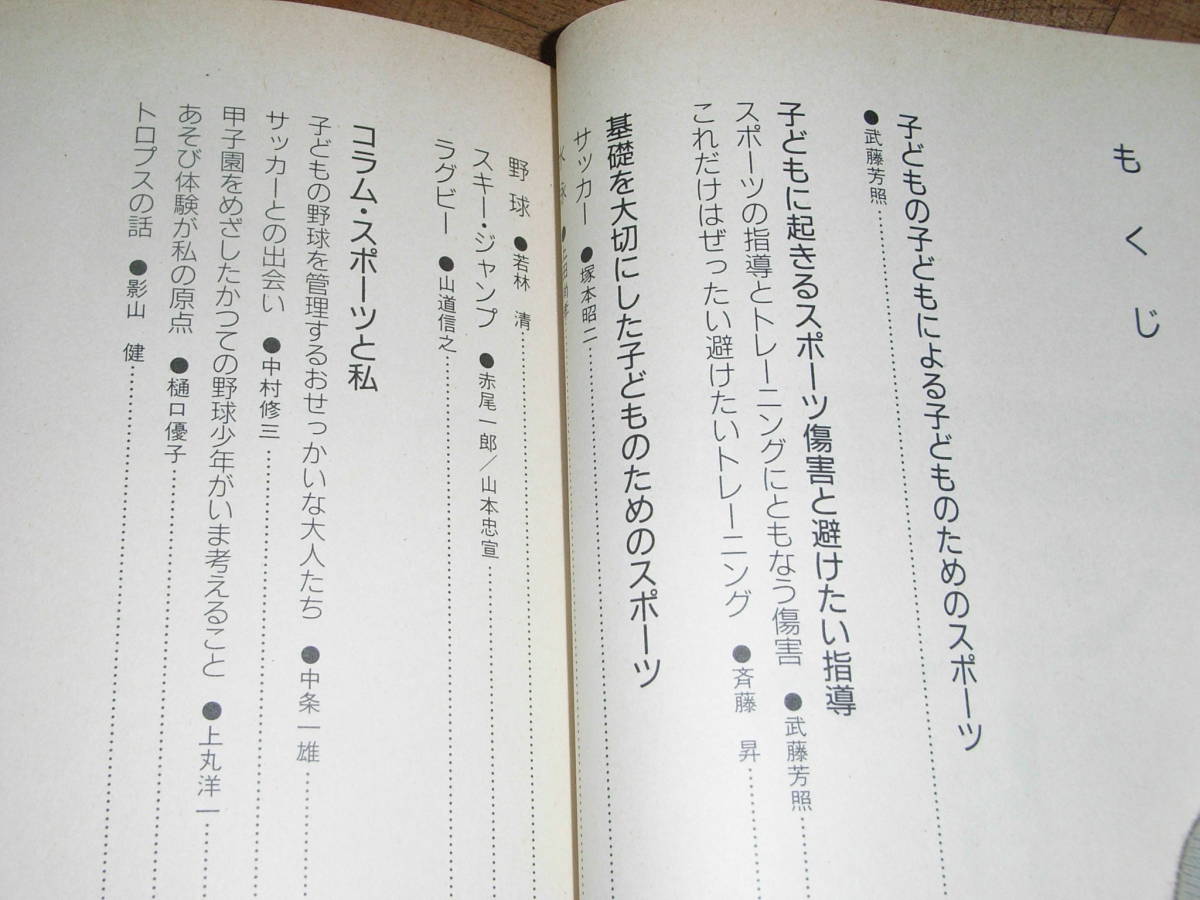 もくじ
子どもの子どもによる子どものためのスポーツ
●武藤芳照
子どもに起きるスポーツ傷害と避けたい指導
スポーツの指導とトレーニングにともなう傷害 ●武藤芳照
これだけはぜったい避けたいトレーニング ●斉藤 昇
基礎を大切にした子どものためのスポーツ
サッカー ●塚本昭二
野球 ●若林 清
スキー・ジャンプ ●赤尾一郎/山本忠宣
ラグビー ●山道信之
コラム・スポーツと私
子どもの野球を管理するおせっかいな大人たち ●中条一雄
サッカーとの出会い ●中村修三
甲子園をめざしたかつての野球少年がいま考えること ●上丸洋一
あそび体験が私の原点 ●樋口優子
トロプスの話 ●影山 健